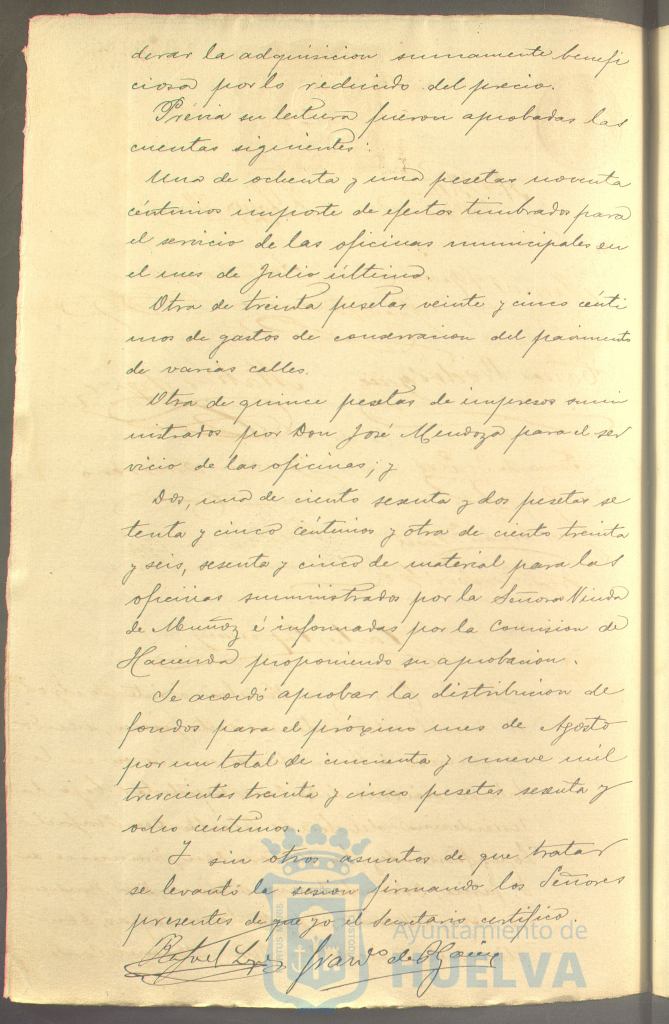 derar la adquisicion sumamente benefi
ciosa por lo reducido del precio.
Prévia su lectura fueron aprobadas las
cuentas siguientes:
Una de ochenta y una pesetas noventa
céntimos importe de efectos timbrados para
el servicio de las oficinas municipales en
el mes de Julio último.
Otra de treinta pesetas veinte y cinco cénti
mos de gastos de conservacion del pavimento
de varias calles.
Otra de quince pesetas de impresos sumi
nistrados por Don José Mendoza para el ser
vicio de las oficinas; y
Dos, una de ciento sesenta y dos pesetas se
tenta y cinco céntimos y otra de ciento treinta
y seis, sesenta y cinco de material para las
oficinas suministrados por la Señora Viuda
de Muñoz é informadas por la Comision de
Hacienda proponiendo su aprobacion.
Se acordó aprobar la distribucion de
fondos para el próximo mes de Agosto
por un total de cincuenta y nueve mil
trescientas treinta y cinco pesetas sesenta y
ocho céntimos.
Y sin otros asuntos de que tratar
se levantó la sesion firmando los Señores
presentes de que yo el Secretario certifico.
Rafael López
de
Ayuntamiento de
HUELVA